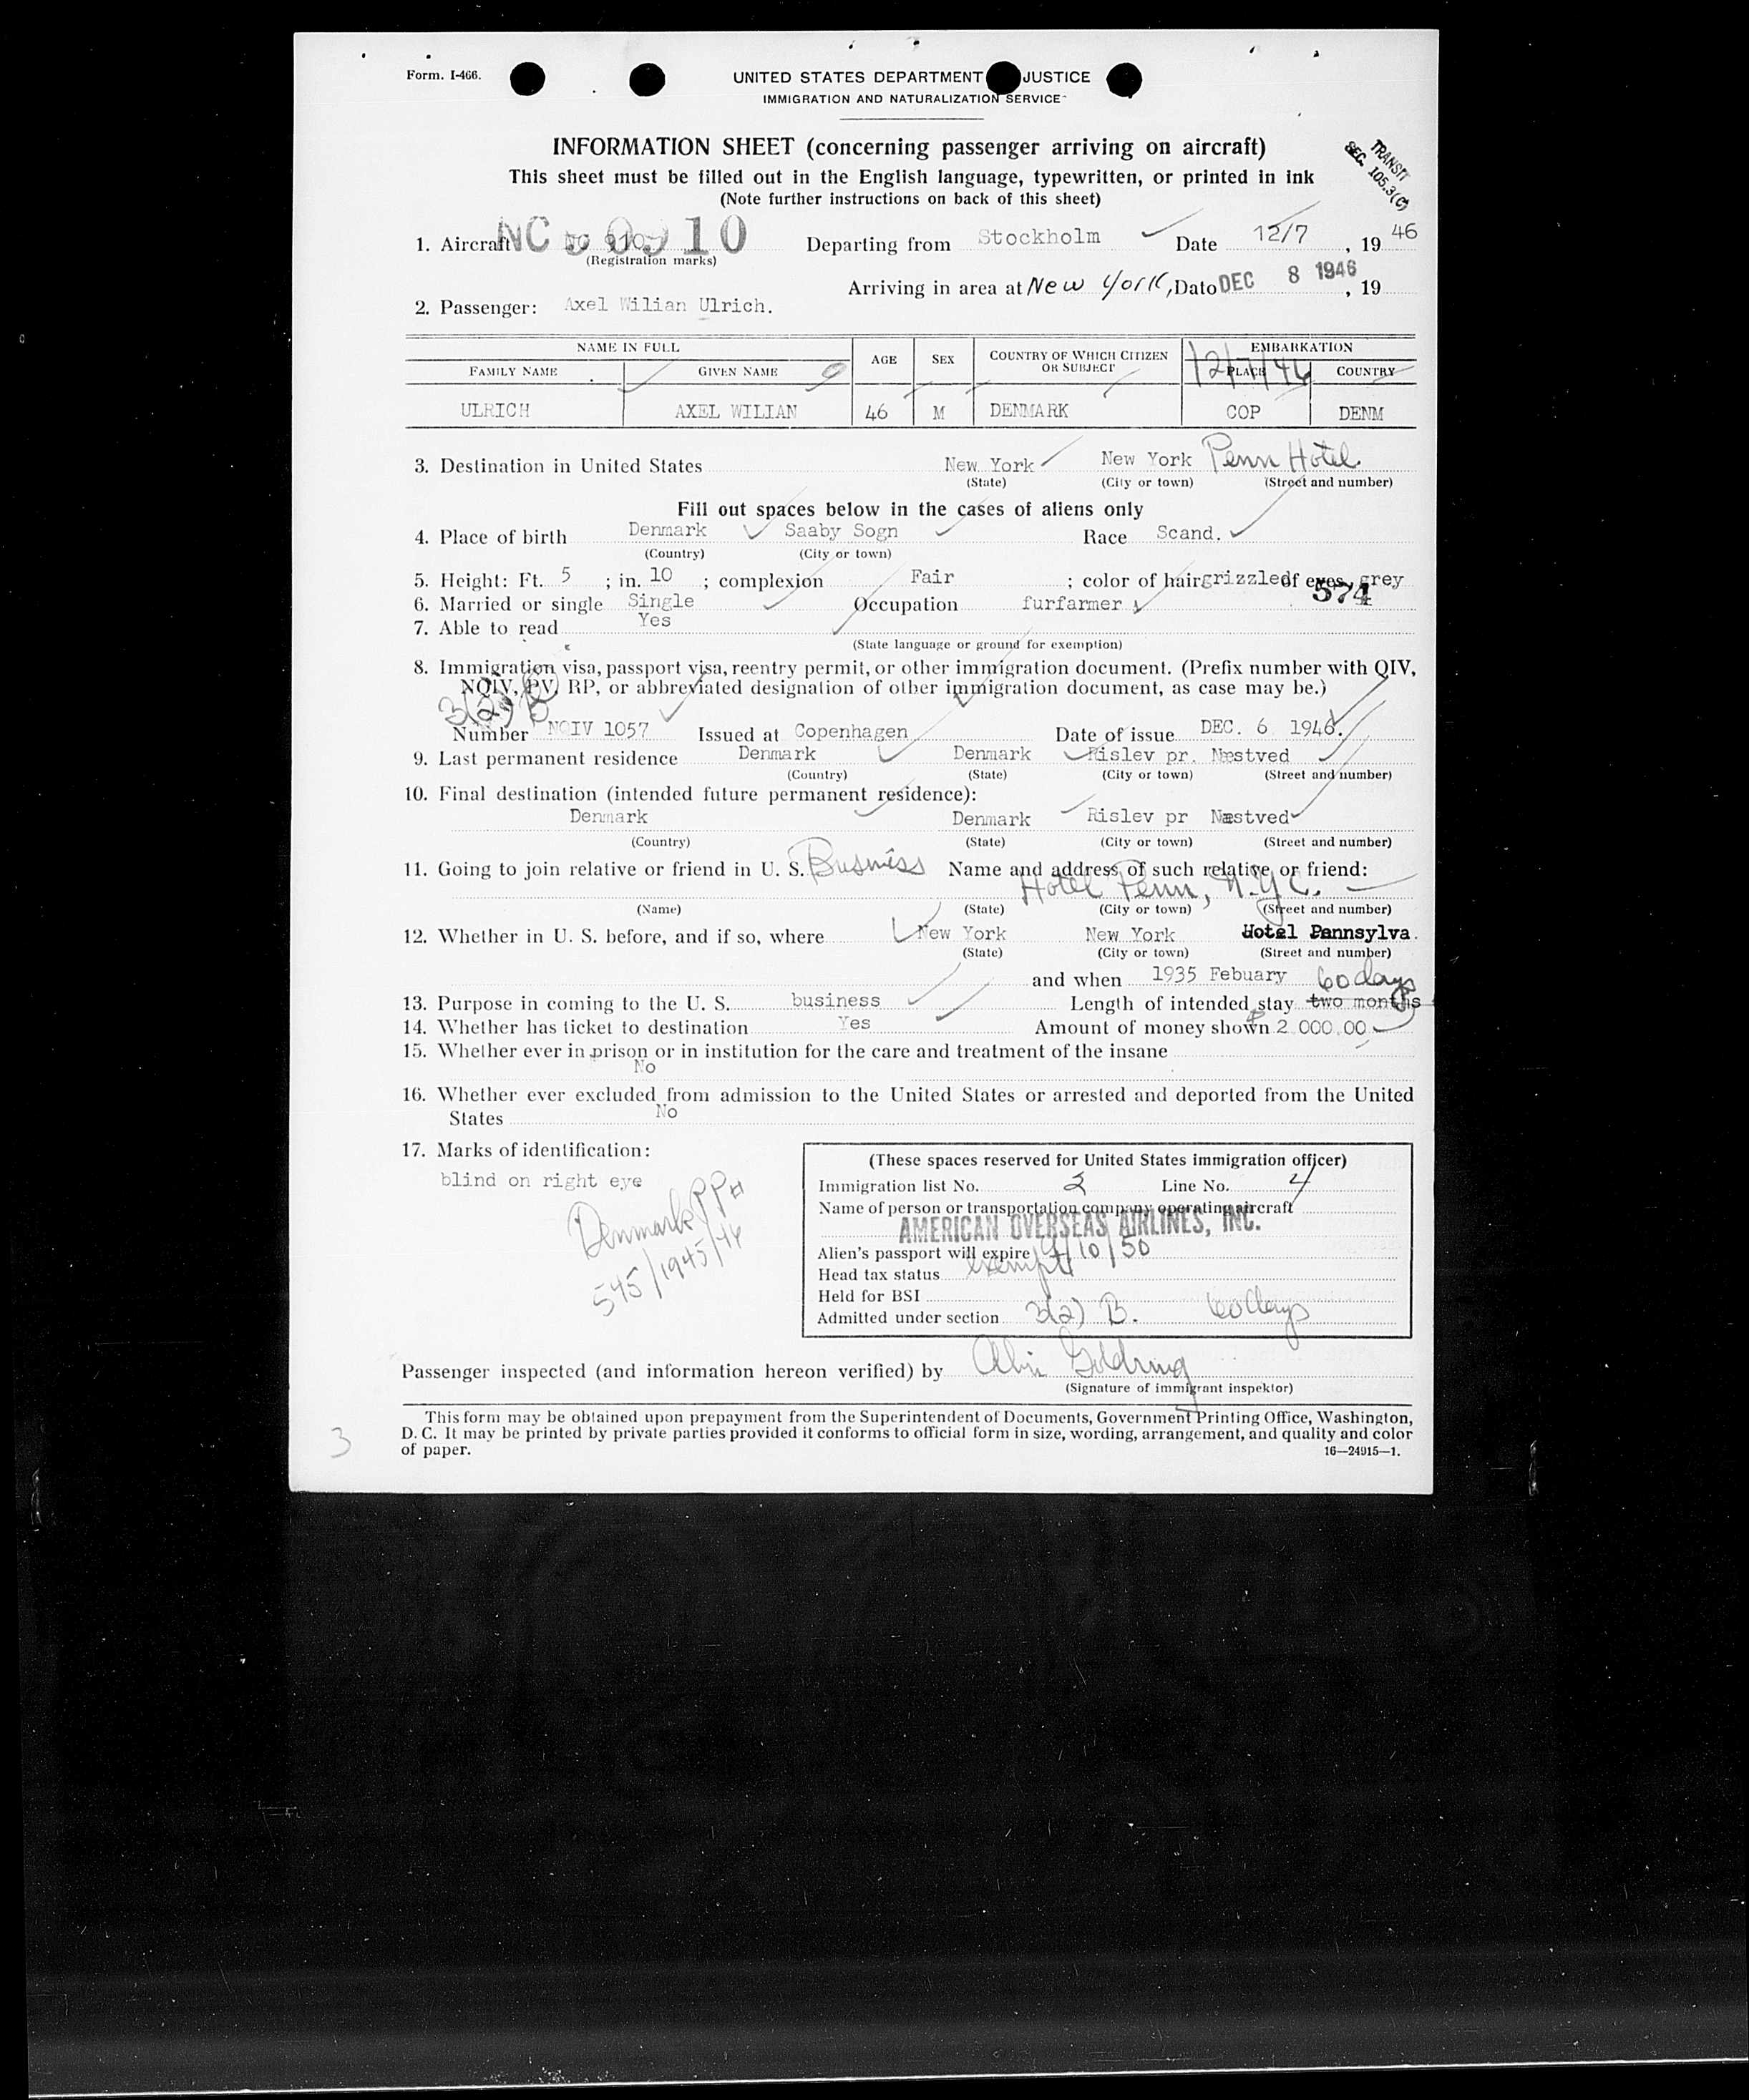 Form. I-466.
UNITED STATES DEPARTMENT JUSTICE
IMMIGRATION AND NATURALIZATION SERVICE
INFORMATION SHEET (concerning passenger arriving on aircraft)
This sheet must be filled out in the English language, typewritten, or printed in ink
(Note further instructions on back of this sheet)
TRANSIT
SEC. 105.3(C)
1. Aircraft NC 90910 Departing from Stockholm Date 12/7, 19 46
(Registration marks)
Arriving in area at New York, Date DEC 8 1946, 19
2. Passenger: Axel Wilian Ulrich.
NAME IN FULL AGE SEX COUNTRY OF WHICH CITIZEN OR SUBJECT EMBARKATION
FAMILY NAME GIVEN NAME PLACE COUNTRY
12/7/46
ULRICH AXEL WILIAN 46 M DENMARK COP DENM
3. Destination in United States New York New York Penn Hotel
(State) (City or town) (Street and number)
Fill out spaces below in the cases of aliens only
4. Place of birth Denmark Saaby Sogn Race Scand.
(Country) (City or town)
5. Height: Ft. 5 ; in. 10 ; complexion Fair ; color of hair grizzled of eyes, grey
574
6. Married or single Single Occupation furfarmer
7. Able to read Yes
(State language or ground for exemption)
8. Immigration visa, passport visa, reentry permit, or other immigration document. (Prefix number with QIV,
NQIV, PV, RP, or abbreviated designation of other immigration document, as case may be.)
3(2) B
Number NQIV 1057 Issued at Copenhagen Date of issue DEC. 6 1946.
9. Last permanent residence Denmark Denmark Rislev pr. Næstved
(Country) (State) (City or town) (Street and number)
10. Final destination (intended future permanent residence):
Denmark Denmark Rislev pr Næstved
(Country) (State) (City or town) (Street and number)
11. Going to join relative or friend in U. S. Business Name and address of such relative or friend:
Hotel Penn, N.Y.C.
(Name) (State) (City or town) (Street and number)
12. Whether in U. S. before, and if so, where New York New York Hotel Pannsylva.
(State) (City or town) (Street and number)
and when 1935 Febuary 60 days
13. Purpose in coming to the U. S. business Length of intended stay two months
14. Whether has ticket to destination Yes Amount of money shown $ 2 000.00
15. Whether ever in prison or in institution for the care and treatment of the insane
No
16. Whether ever excluded from admission to the United States or arrested and deported from the United
States No
17. Marks of identification:
blind on right eye
Denmark PP#
545/1945/46
(These spaces reserved for United States immigration officer)
Immigration list No. 2 Line No. 4
Name of person or transportation company operating aircraft
AMERICAN OVERSEAS AIRLINES, INC.
Alien's passport will expire 9/10/50
Head tax status exempt
Held for BSI
Admitted under section 3(2) B. 60 days
Passenger inspected (and information hereon verified) by Goldring
(Signature of immigrant inspektor)
This form may be obtained upon prepayment from the Superintendent of Documents, Government Printing Office, Washington,
D. C. It may be printed by private parties provided it conforms to official form in size, wording, arrangement, and quality and color
of paper. 16—24915—1.
3